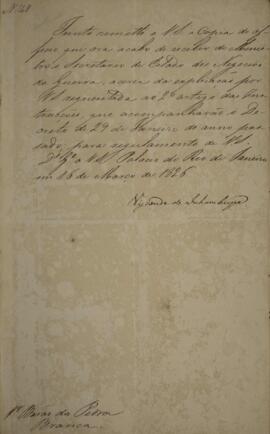 Nº 28
Junto remetto a VS. a Copia do offi-
cio que ora acabo de receber do Minis-
tro e Secretario de Estado dos Negocios
da Guerra, acerca da explicação por
VS. requisitada ao 2º artigo das Ins-
trucções, que acompanharão o De-
creto de 29 de Janeiro do anno pas-
sado, para regulamento de VS.
Dˢ Gᵉ a VS. Palacio do Rio de Janeiro
em 16 de Março de 1826
Visconde de Inhambupe
Sʳ. Barão da Pedra
Branca.